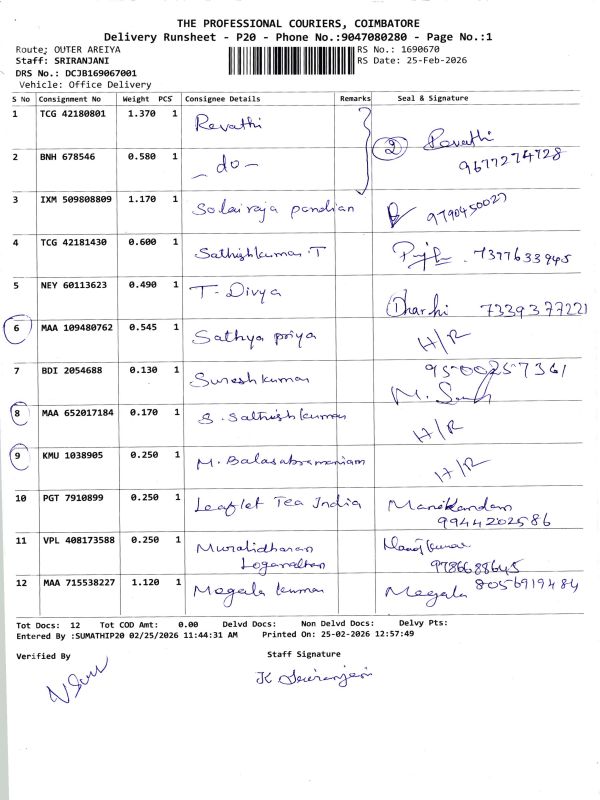 THE PROFESSIONAL COURIERS, COIMBATORE
Delivery Runsheet - P20 - Phone No.:9047080280 - Page No.:1
Route; OUTER AREIYA RS No.: 1690670
Staff: SRIRANJANI RS Date: 25-Feb-2026
DRS No.: DCJB169067001
Vehicle: Office Delivery
S No Consignment No Weight PCS Consignee Details Remarks Seal & Signature
1 TCG 42180801 1.370 1 Revathi Revathi
2 BNH 678546 0.580 1 - do - 2 9677274728
3 IXM 509808809 1.170 1 Solairaja pandian 9790450027
4 TCG 42181430 0.600 1 Sathishkumar.T 7377633945
5 NEY 60113623 0.490 1 T. Divya Dharshi 7339377221
6 MAA 109480762 0.545 1 Sathya priya H/R
7 BDI 2054688 0.130 1 Suresh kumar 9500257361
8 MAA 652017184 0.170 1 S. Sathish kumar H/R
9 KMU 1038905 0.250 1 M. Balasabramaniam H/R
10 PGT 7910899 0.250 1 Leaflet Tea India Manikandan
9944202586
11 VPL 408173588 0.250 1 Muralidharan Manojkumar
Loganathan 9786688645
12 MAA 715538227 1.120 1 Megala kumar Megala 8056919484
Tot Docs: 12 Tot COD Amt: 0.00 Delvd Docs: Non Delvd Docs: Delvy Pts:
Entered By :SUMATHIP20 02/25/2026 11:44:31 AM Printed On: 25-02-2026 12:57:49
Verified By Staff Signature
K Sriranjani